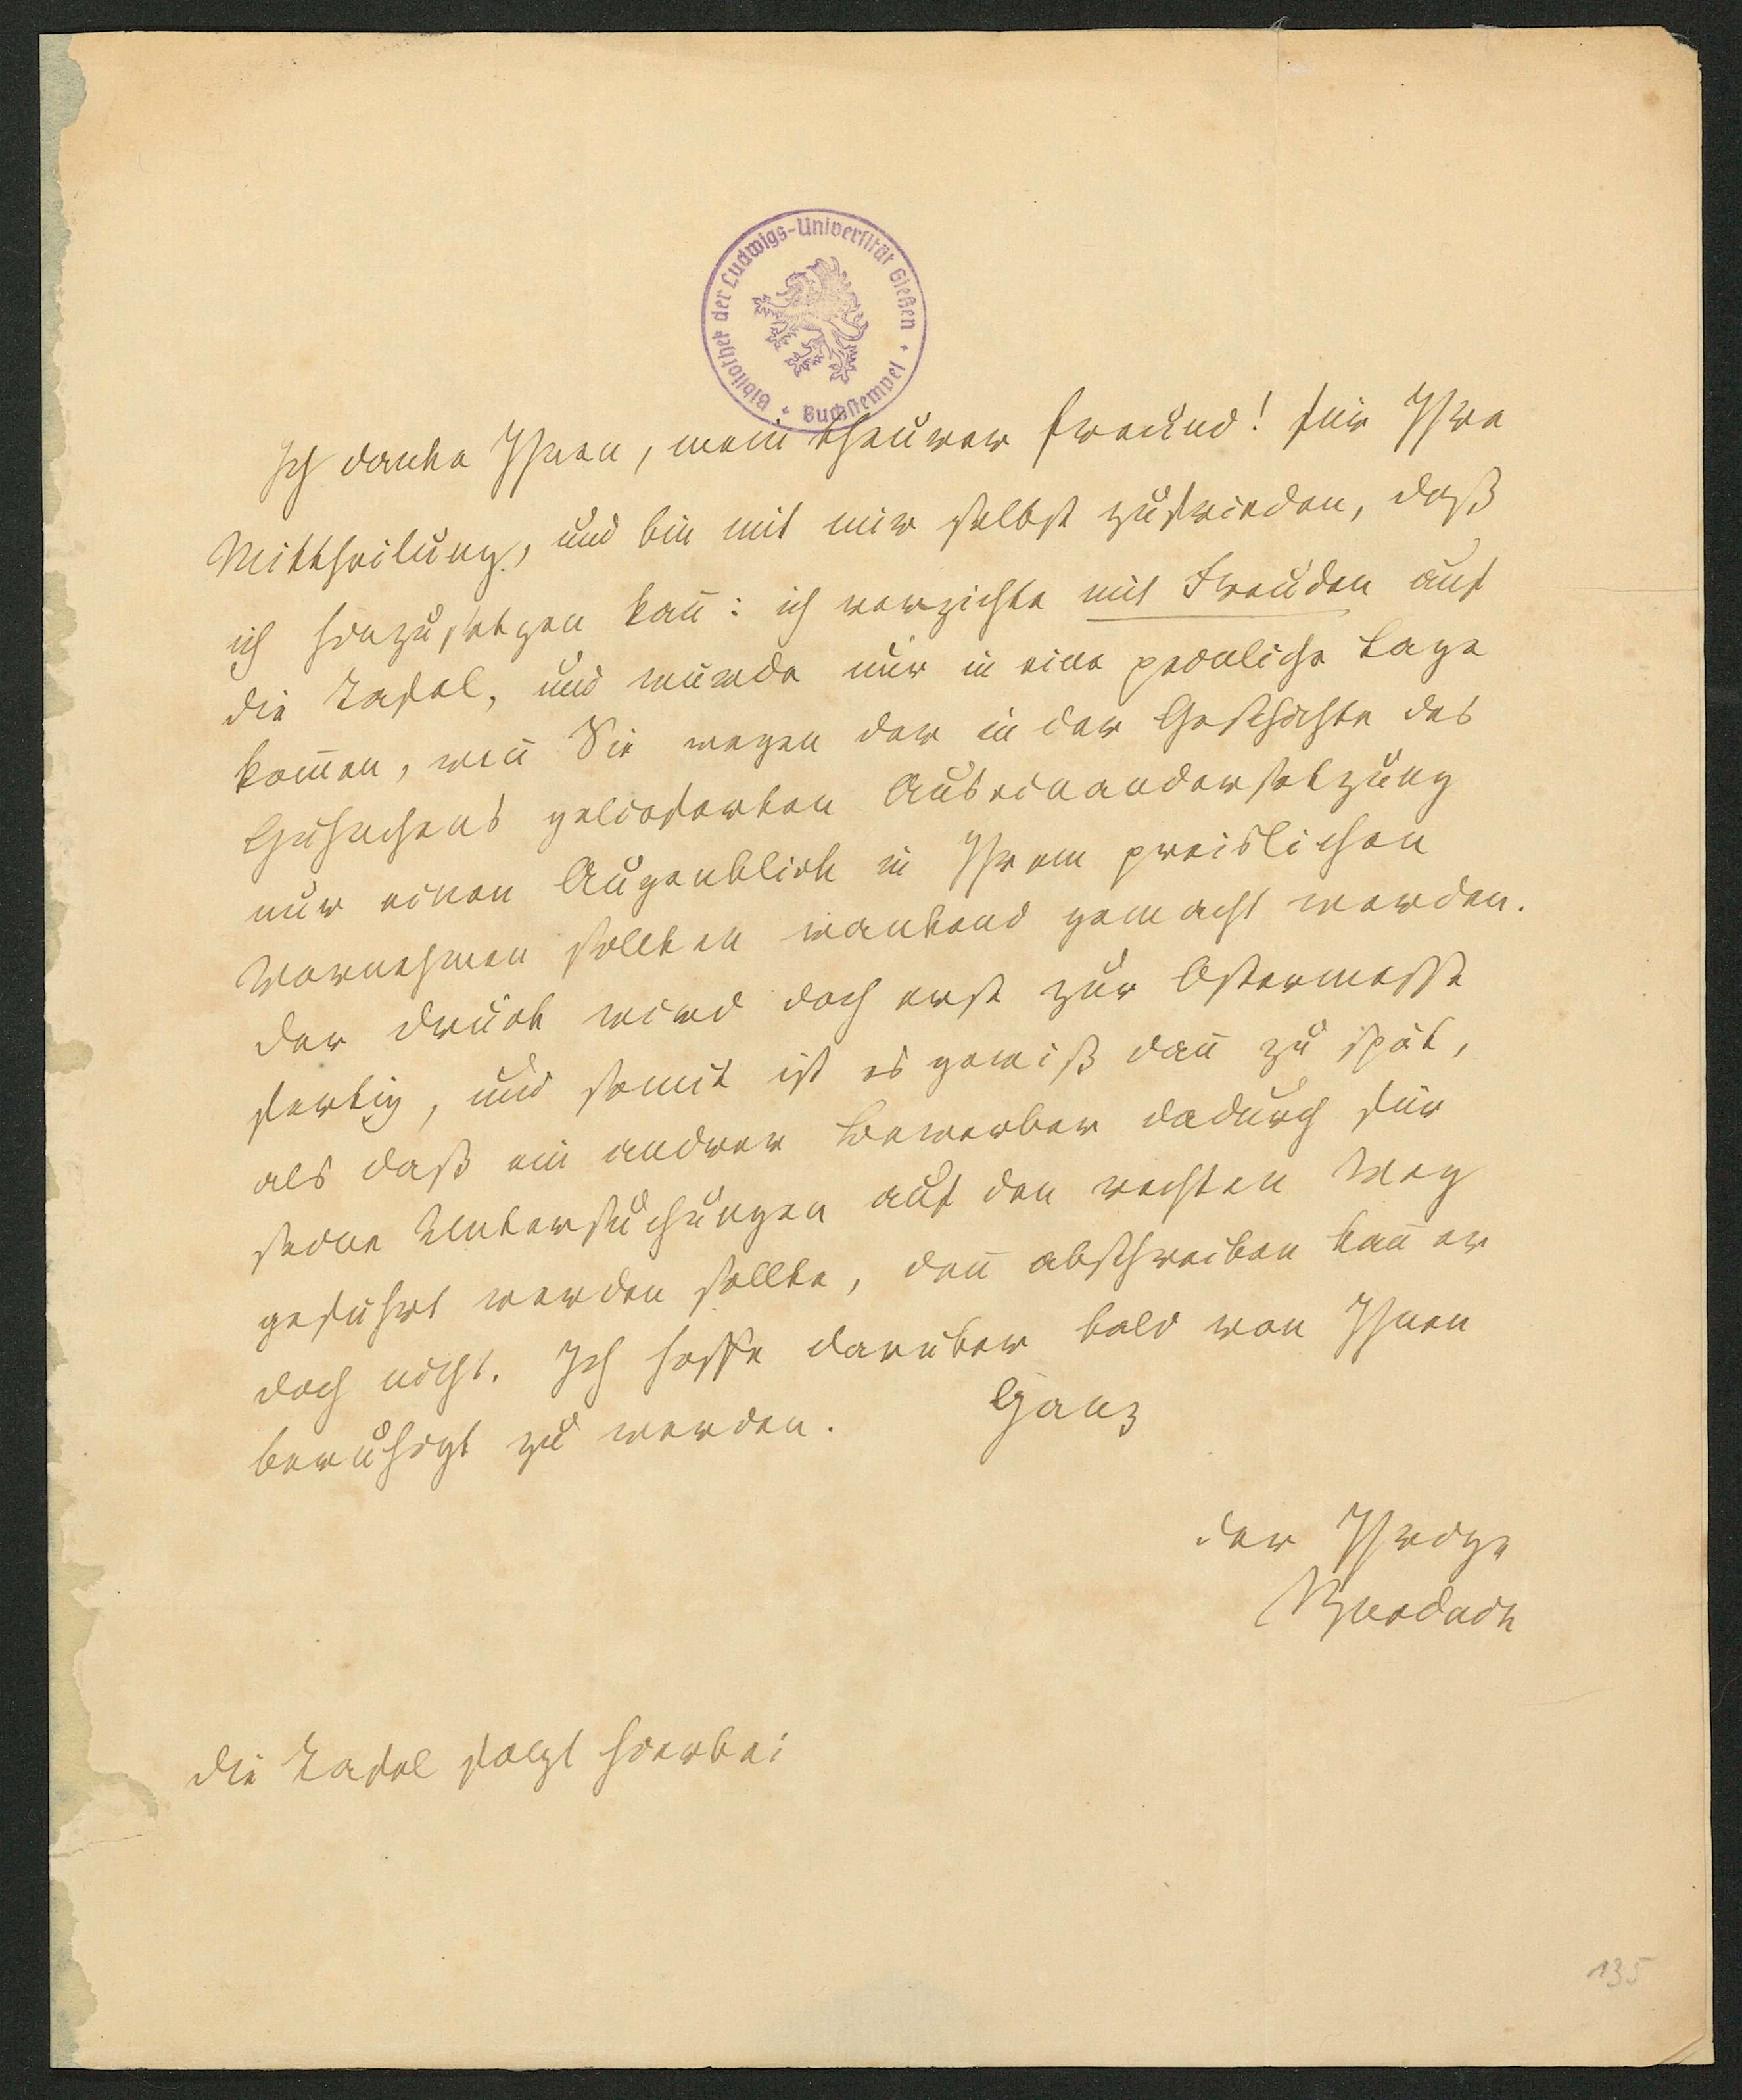 Bibliothek der Ludwigs-Universität Gießen
Buchstempel
Ich danke Ihnen, mein theurer Freund! für Ihre
Mittheilung, und bin mit mir selbst zufrieden, daß
ich hinzusetzen kan̄: ich verzichte mit Freuden auf
die Tafel, und würde nur in eine peinliche Lage
kom̄en, wen̄ Sie wegen der in der Geschichte des
Hühnchens gelieferten Auseinandersetzung
nur einen Augenblick in Ihrem preislichen
Vornehmen sollten wankend gemacht werden.
Der Druck wird doch erst zur Ostermesse
fertig, und somit ist es gewiß dan̄ zu spät,
als daß ein andrer Bewerber dadurch für
seine Untersuchungen auf den rechten Weg
geführt werden sollte, den̄ abschreiben kan̄ er
doch nicht. Ich hoffe darüber bald von Ihnen
beruhigt zu werden. Ganz
der Ihrige
Burdach
die Tafel folgt hierbei
135